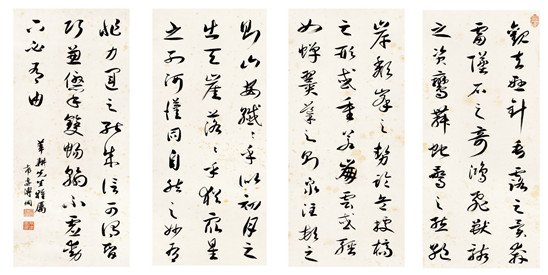 觀夫懸針垂露之異奔
雷墜石之奇鴻飛獸駭
之資鸞舞蛇驚之態絕
岸頹峯之勢臨危據槁
之形或重若崩雲或輕
如蟬翼導之則泉注頓之
則山安纖纖乎似初月之
出天崖落落乎猶眾星
之列河漢同自然之妙有
非力運之能成信可謂智
巧兼優心手雙暢翰不虛動
下必有由
先生雅屬